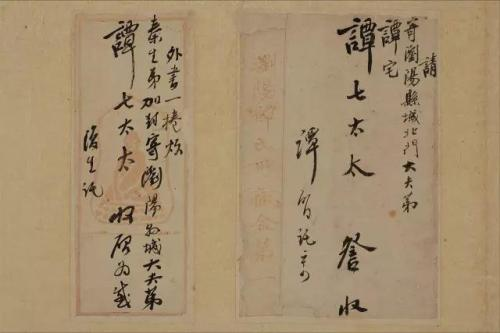 請
寄瀏陽縣城北門大夫第
譚宅
譚七太太 詧收
譚
外書一捲煩
秦生弟加封寄瀏陽縣城大夫第
譚七太太 收啟為感
復生託